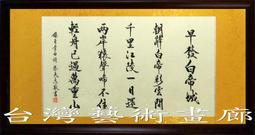 早發白帝城
朝辭白帝彩雲間
千里江陵一日還
兩岸猿聲啼不住
輕舟已過萬重山
台灣藝術畫廊